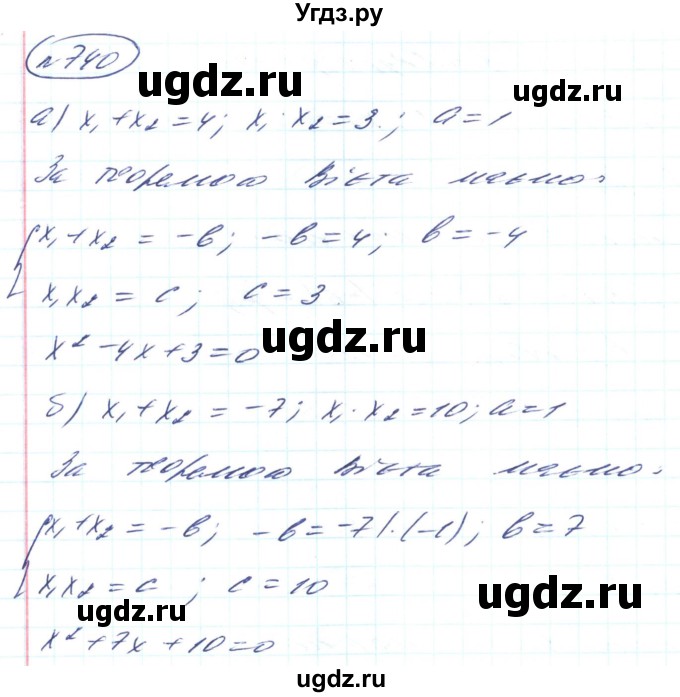 Угдз.ру
№740
ugdz.ru
ugdz.ru
а) x₁+x₂=4; x₁·x₂=3; a=1
За теоремою Вієта маємо:
x₁+x₂ = -в; -в=4; в=-4
x₁x₂ = c; c=3.
ugdz.ru
x²-4x+3=0
б) x₁+x₂ = -7; x₁·x₂=10; a=1
За теоремою Вієта маємо:
x₁+x₂ = -в; -в=-7|·(-1); в=7
x₁x₂=c; c=10
ugdz.ru
x²+7x+10=0
ugdz.ru